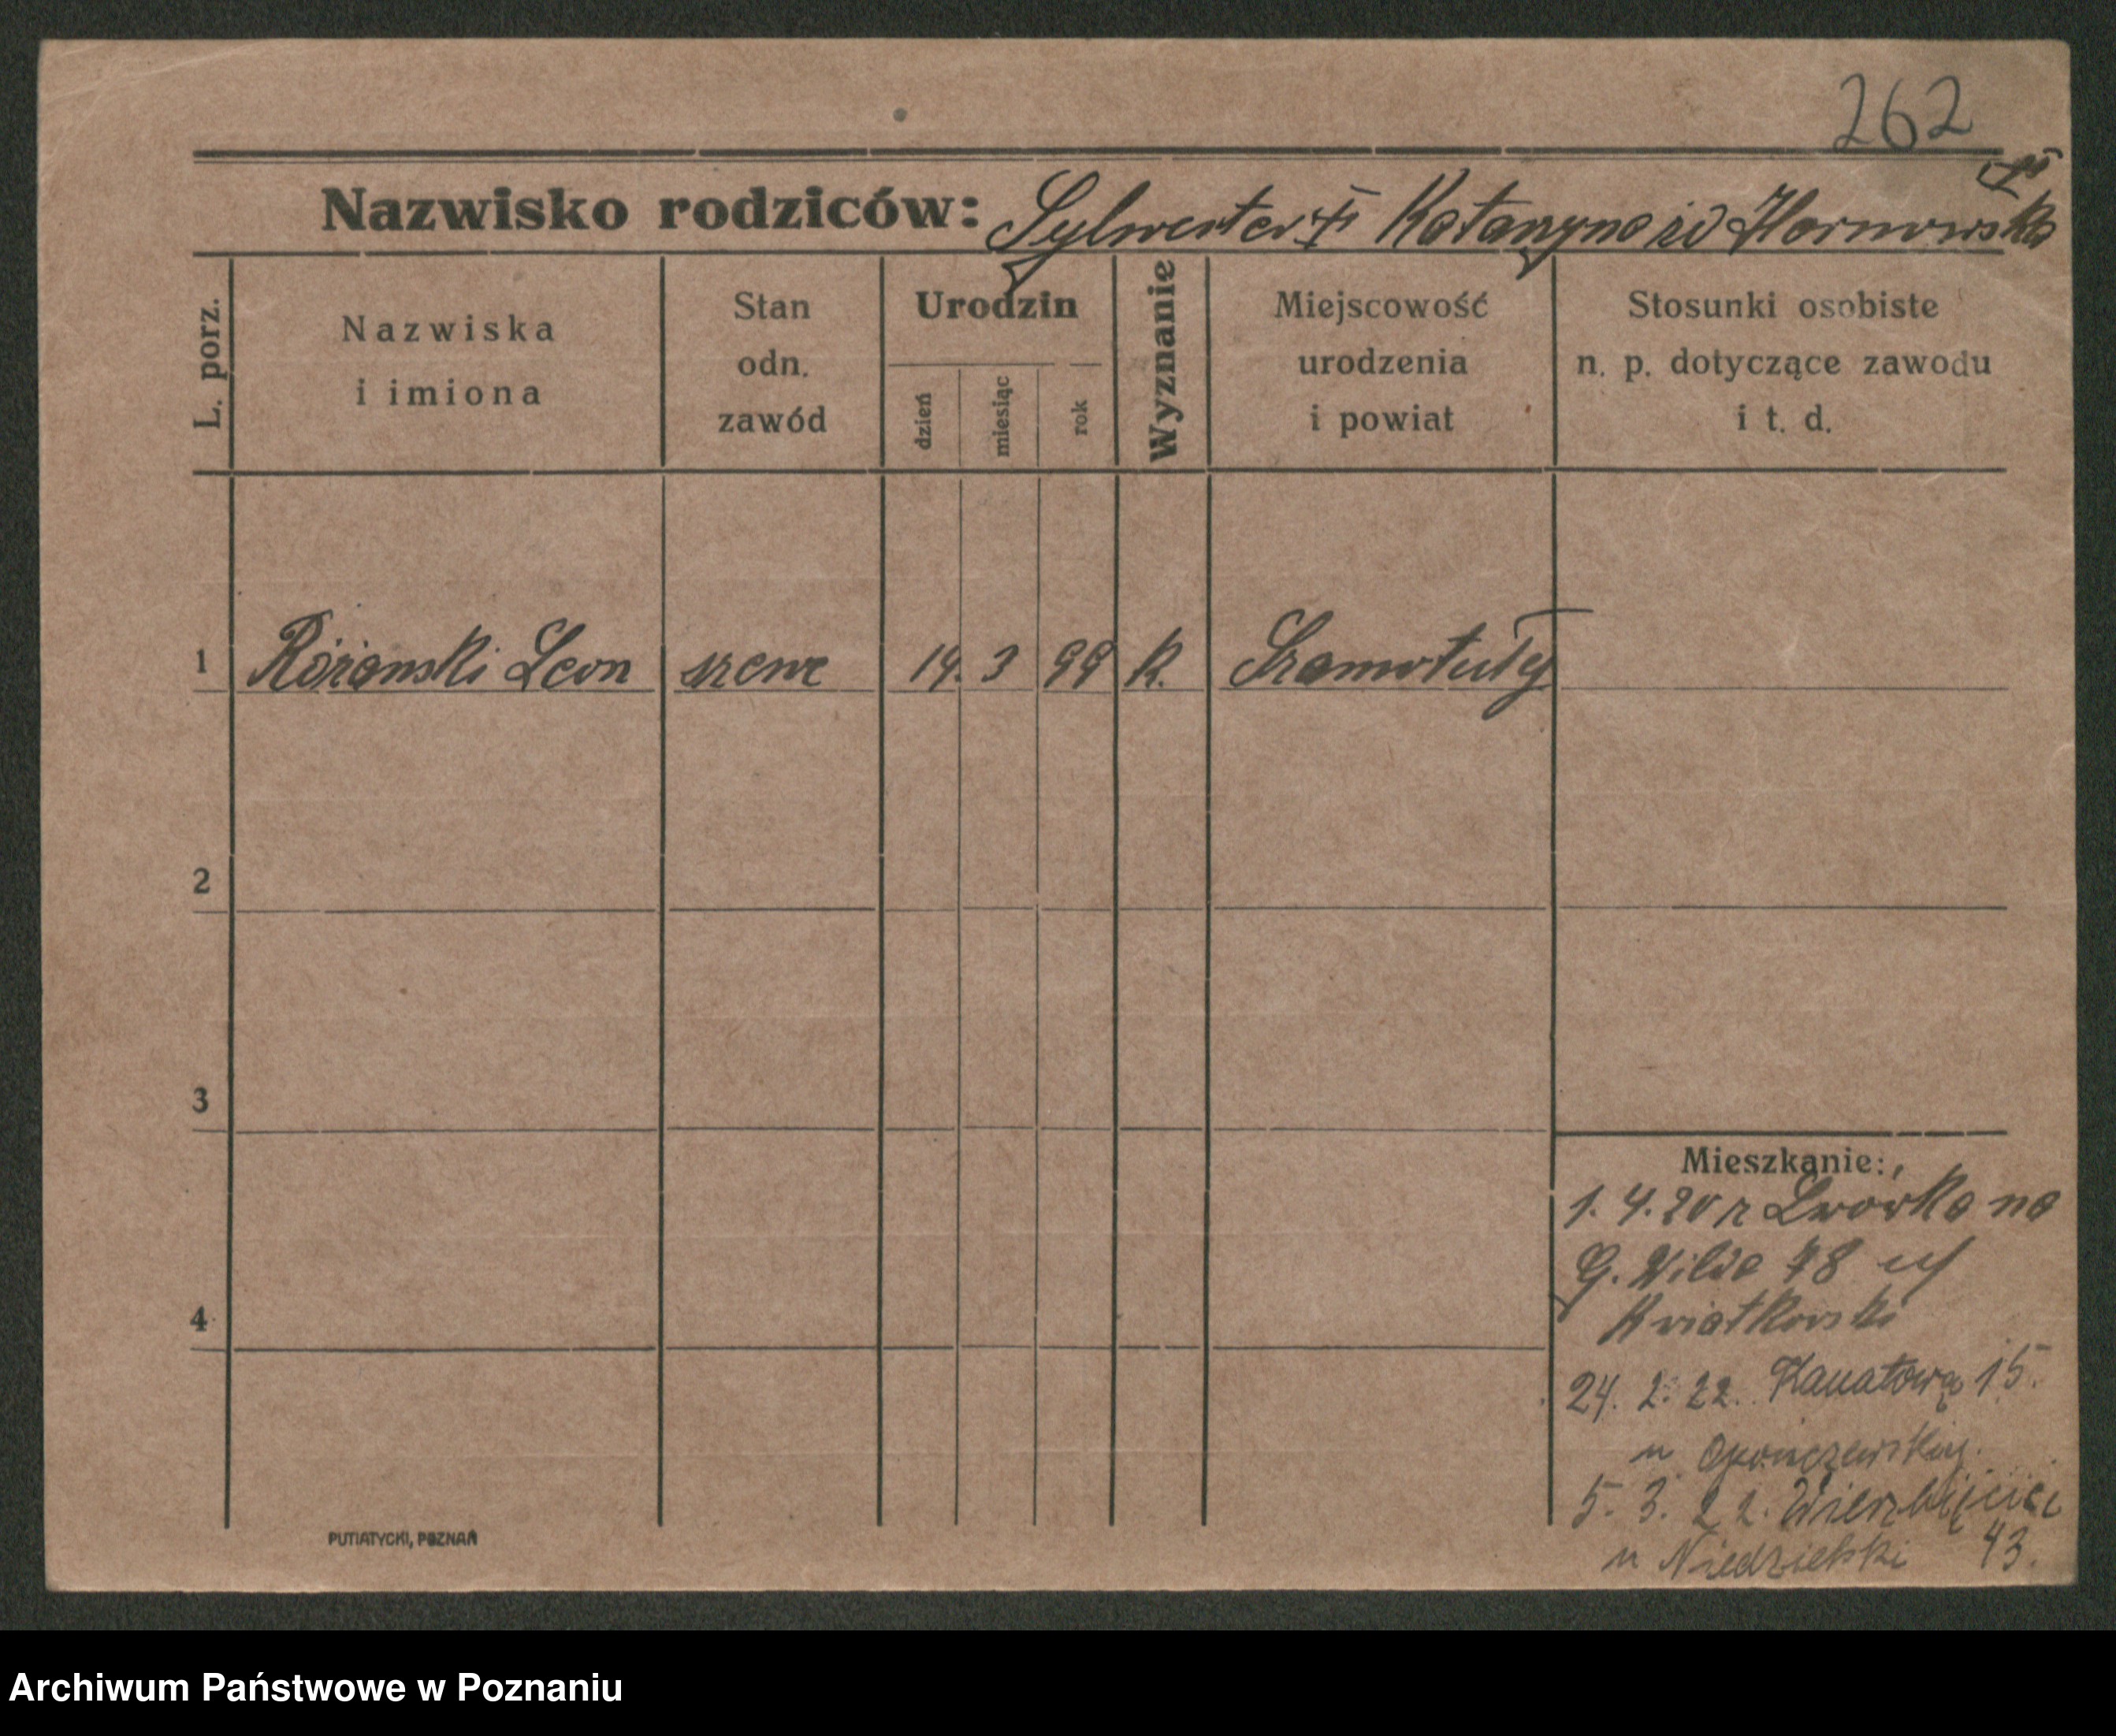 262
Nazwisko rodziców: Sylwester † Katarzyna
L. porz.
Nazwiska
i imiona
Stan
odn.
zawód
Urodzin
dzień
miesiąc
rok
Wyznanie
Miejscowość
urodzenia
i powiat
Stosunki osobiste
n. p. dotyczące zawodu
i t. d.
1 Różański Leon szewc 14. 3 99 K. Szamotuły
2
3
4
Mieszkanie:
1. 4. 20 z Lwówka na
G. Wilda 78
Kwiatkowski
24. 2. 22. 15.
u
5. 3. 22. Wierzbięcici
u Niedzielski 43.
PUTIATYCKI, POZNAŃ
Archiwum Państwowe w Poznaniu